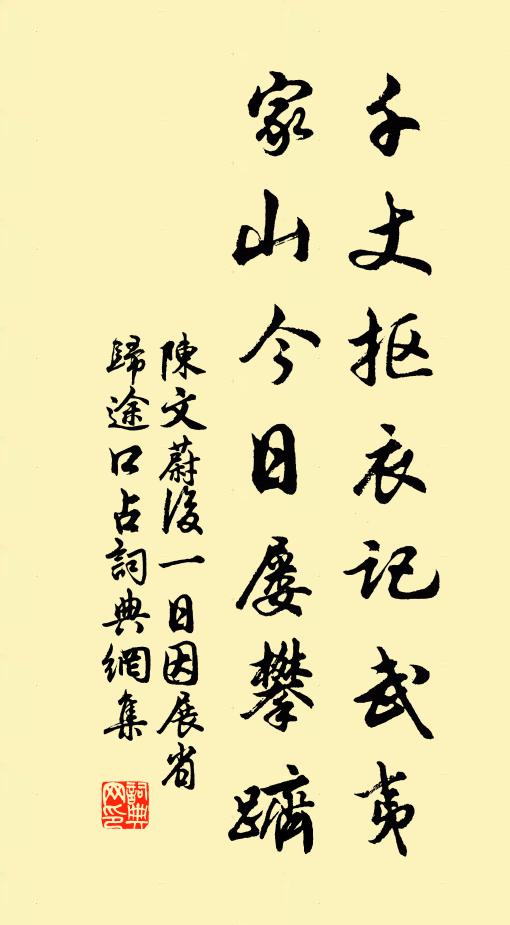 千丈抠衣记武夷
家山今日屡攀躋
陳文蔚後一日因展省
歸途口占詞典網集
詞典网印